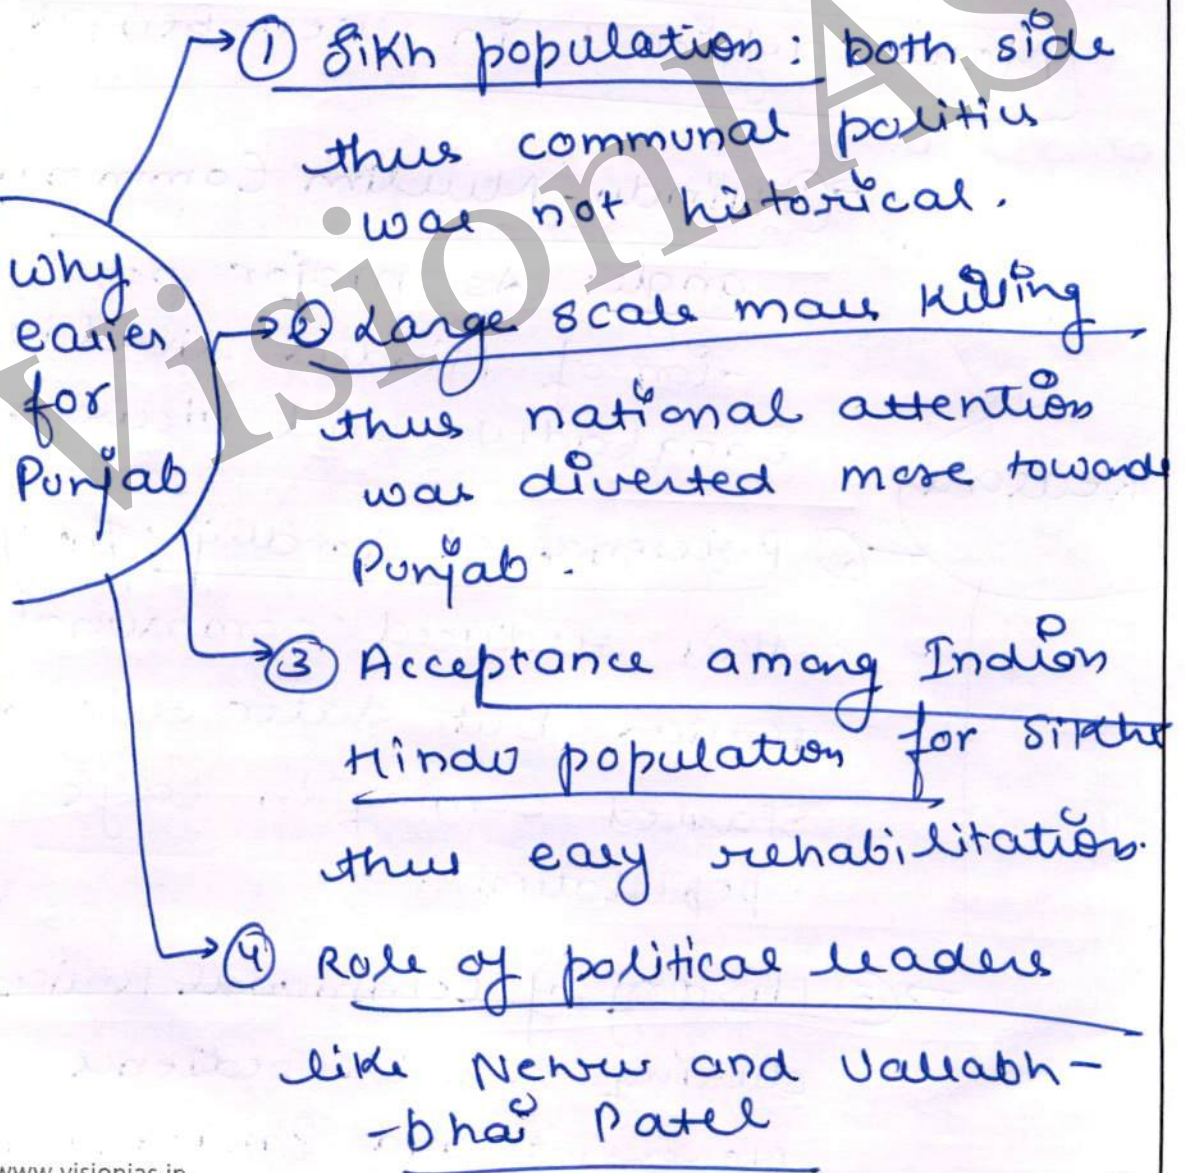 ① Sikh population: both side
thus communal politics
was not historical.
why
easier
for
Punjab
② Large scale mass killing
thus national attention
was diverted more towards
Punjab.
③ Acceptance among Indian
Hindu population for Sikhs
thus easy rehabilitation.
④ Role of political leaders
like Nehru and Vallabh-
-bhai Patel
VisionIAS
www.visionias.in